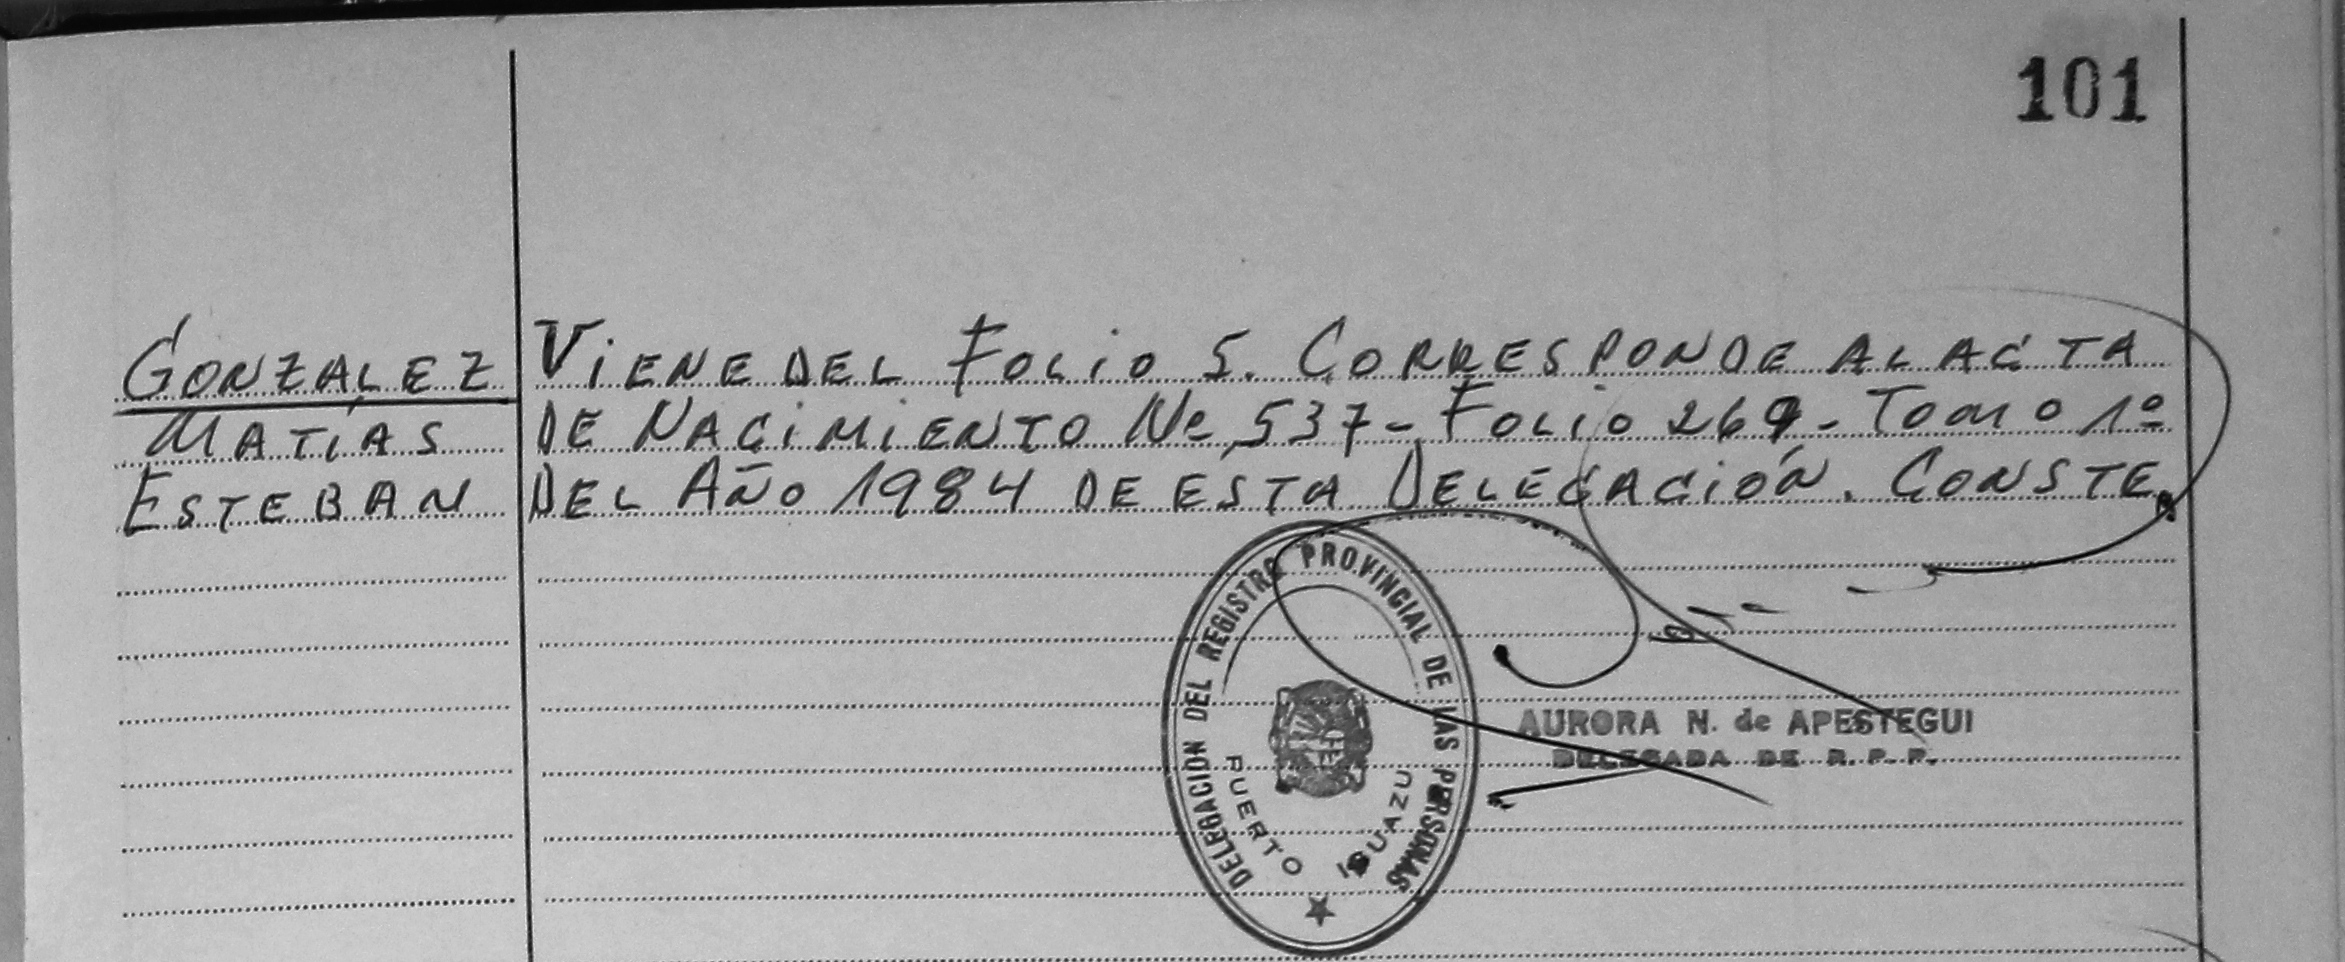 101
GONZALEZ
MATÍAS
ESTEBAN
VIENE DEL FOLIO 5. CORRESPONDE AL ACTA
DE NACIMIENTO Nº 537 - FOLIO 269 - TOMO 1º
DEL AÑO 1984 DE ESTA DELEGACIÓN. CONSTE.
DELEGACION DEL REGISTRO PROVINCIAL DE LAS PERSONAS
PUERTO IGUAZU
AURORA N. de APESTEGUI
DELEGADA DE R. P. P.